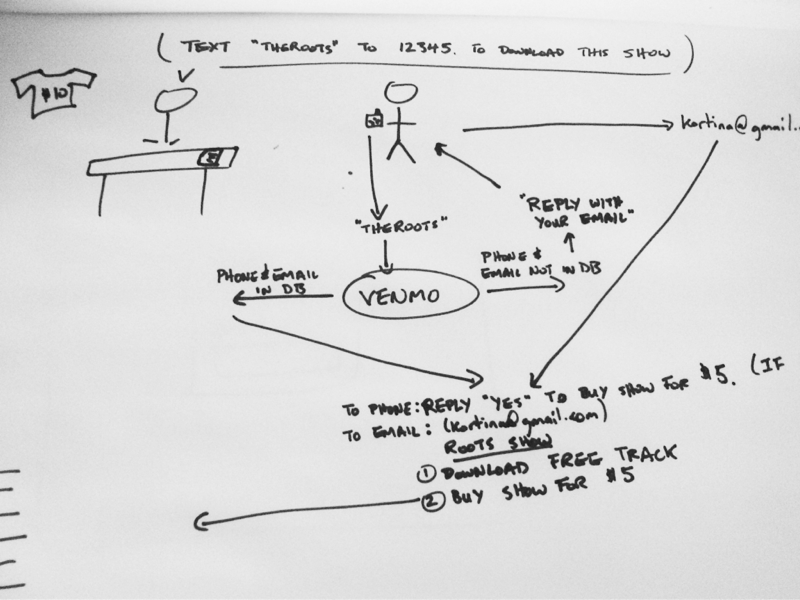 ( TEXT "THEROOTS" TO 12345. TO DOWNLOAD THIS SHOW )
$10
kortina@gmail.
"REPLY WITH
YOUR EMAIL"
"THEROOTS"
PHONE &
EMAIL NOT IN DB
PHONE & EMAIL
IN DB
VENMO
TO PHONE: REPLY "YES" TO BUY SHOW FOR $5. (IF
TO EMAIL: (kortina@gmail.com)
ROOTS SHOW
① DOWNLOAD FREE TRACK
② BUY SHOW FOR $5